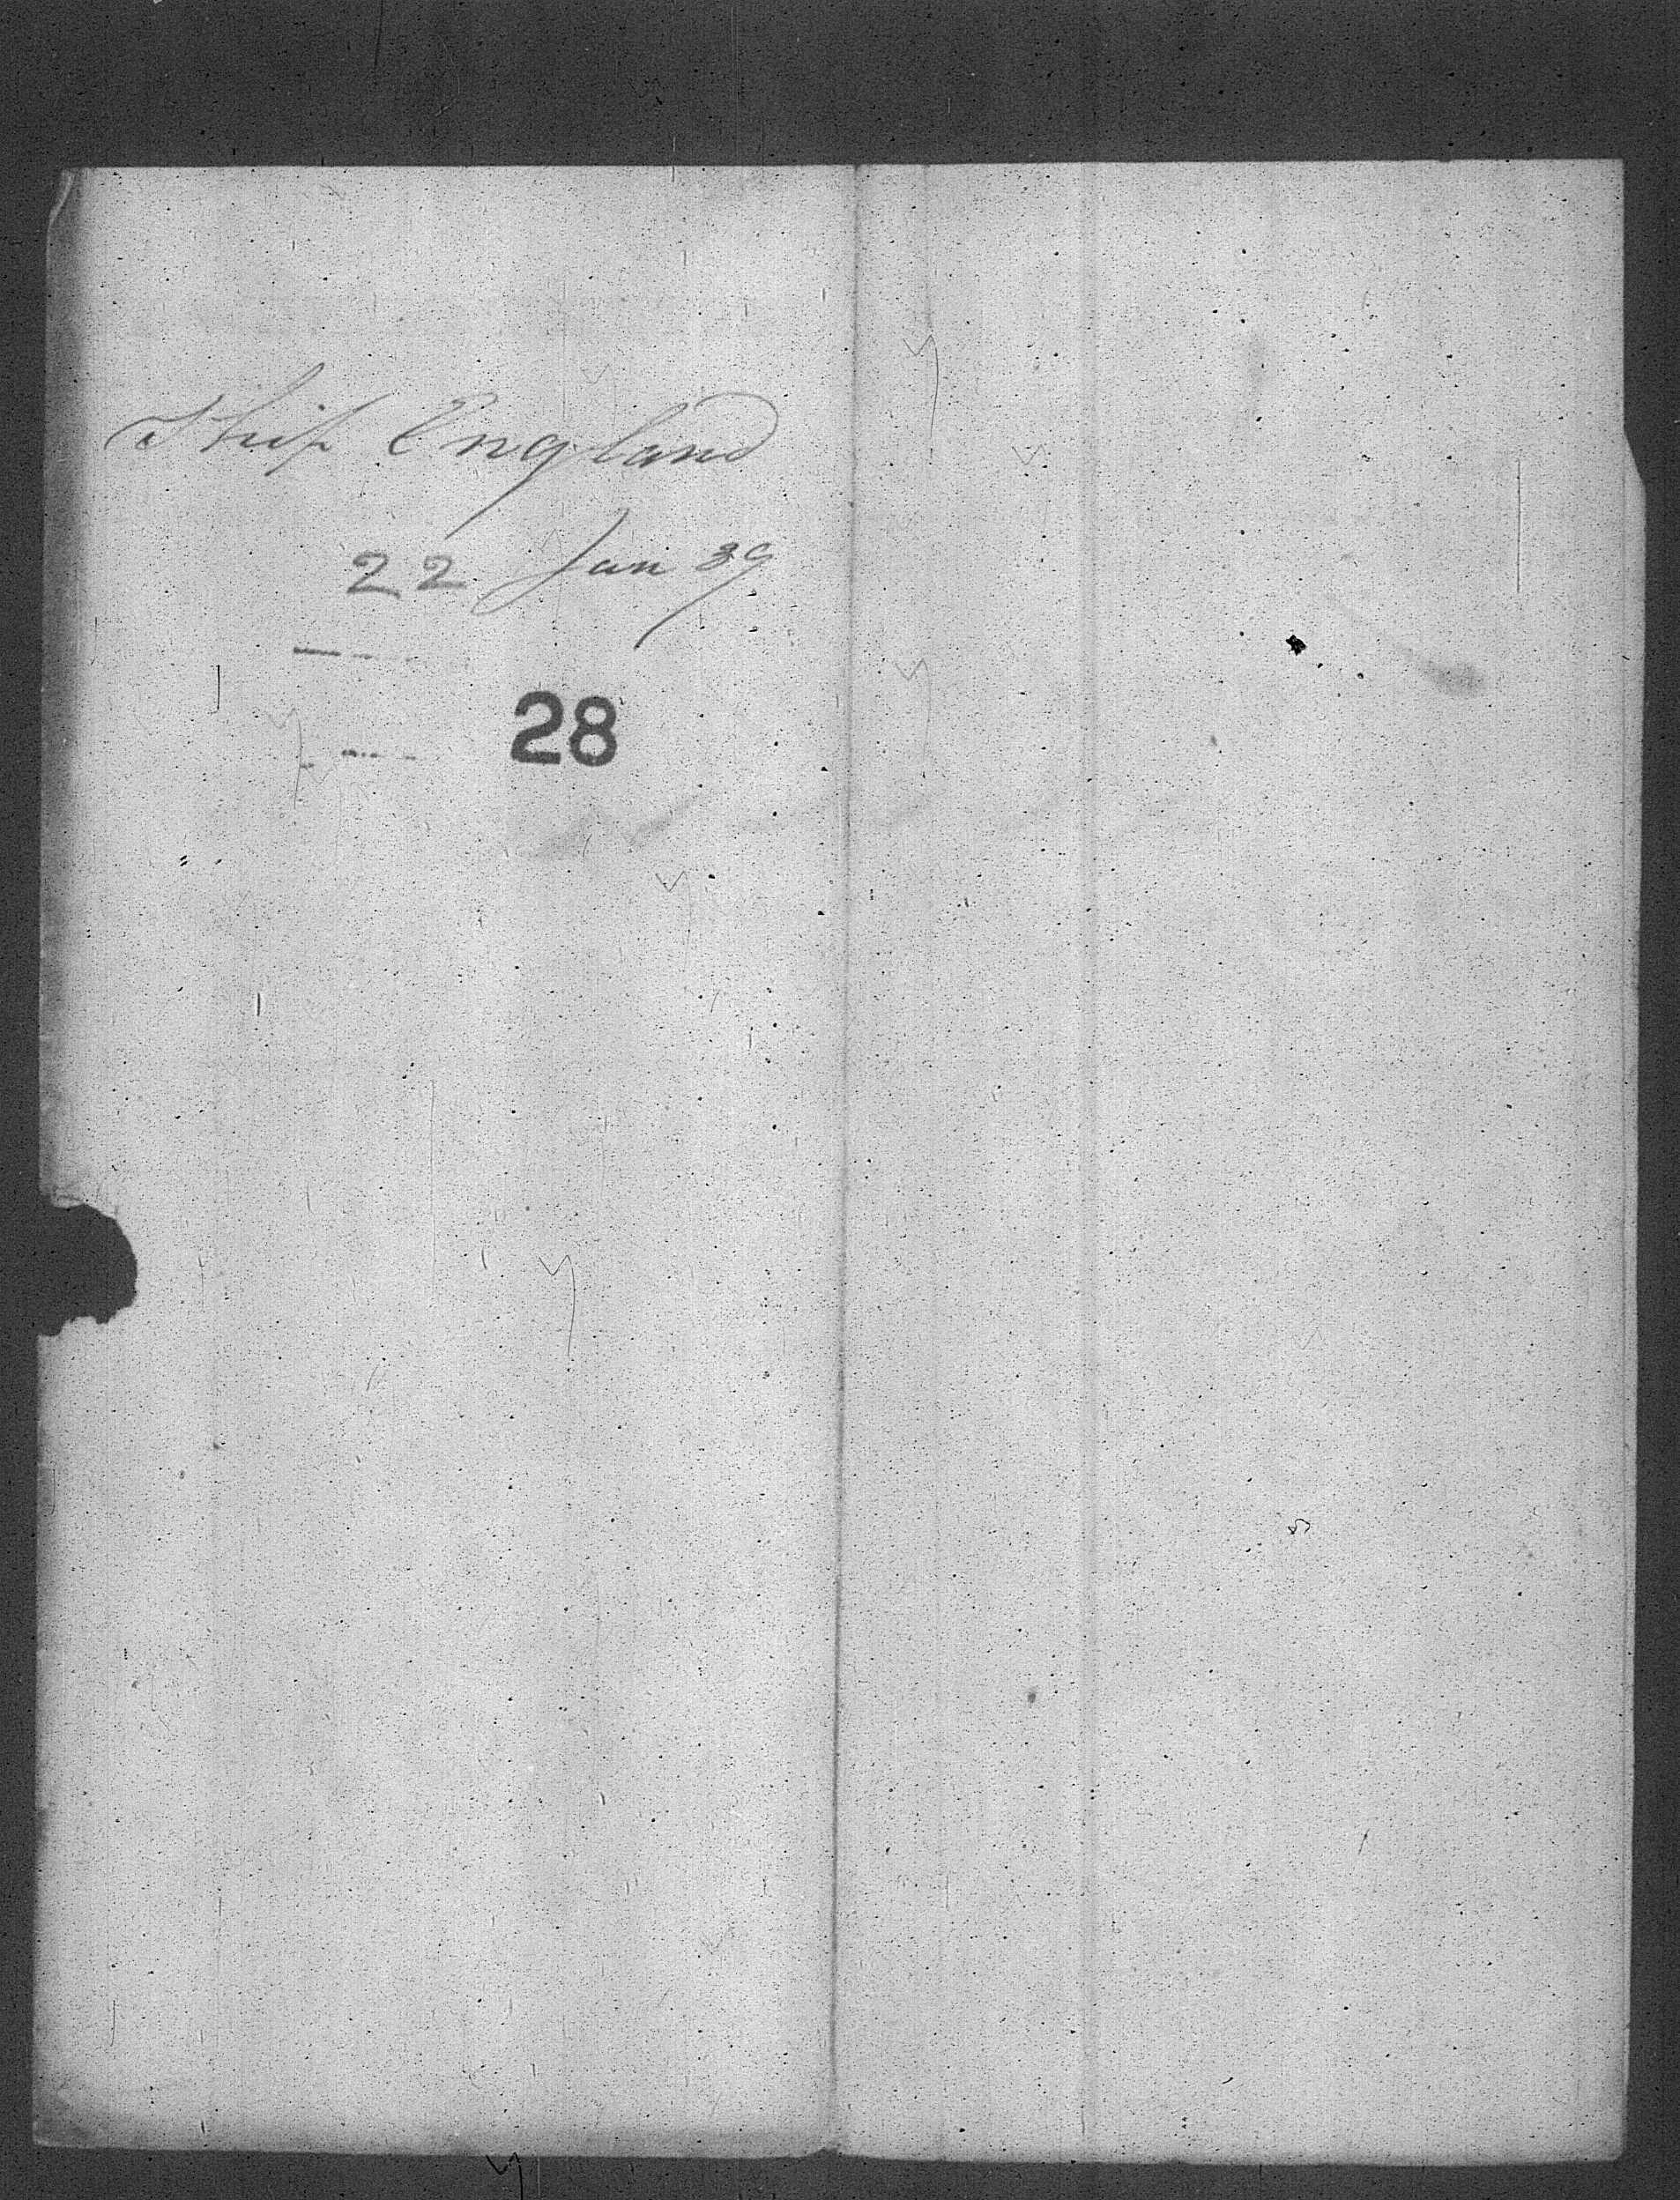 Ship England
22 Jan 39
28